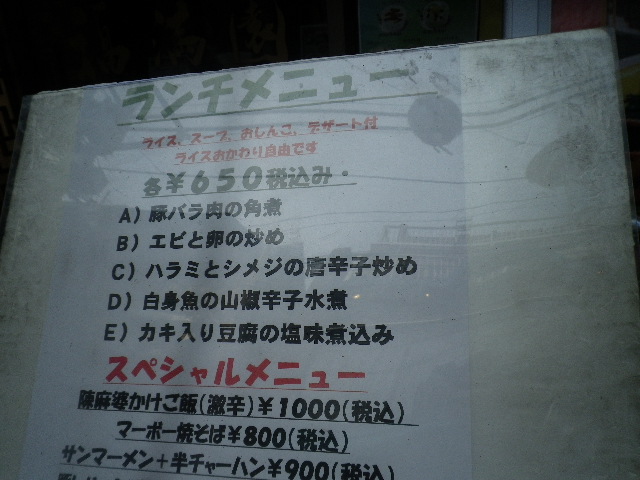 ランチメニュー
ライス、スープ、おしんこ、デザート付
ライスおかわり自由です
各￥650税込み・
A）豚バラ肉の角煮
B）エビと卵の炒め
C）ハラミとシメジの唐辛子炒め
D）白身魚の山椒辛子水煮
E）カキ入り豆腐の塩味煮込み
スペシャルメニュー
陳麻婆かけご飯(激辛)￥1000(税込)
マーボー焼そば￥800(税込)
サンマーメン＋半チャーハン￥900(税込)